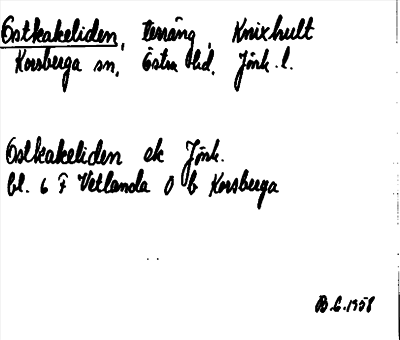 Ostkakeliden, terräng, Knixhult
Korsberga sn, Östra hd, Jönk. l.
Ostkakeliden ek Jönk.
bl. 6 F Vetlanda Ö b Korsberga
B.G. 1958